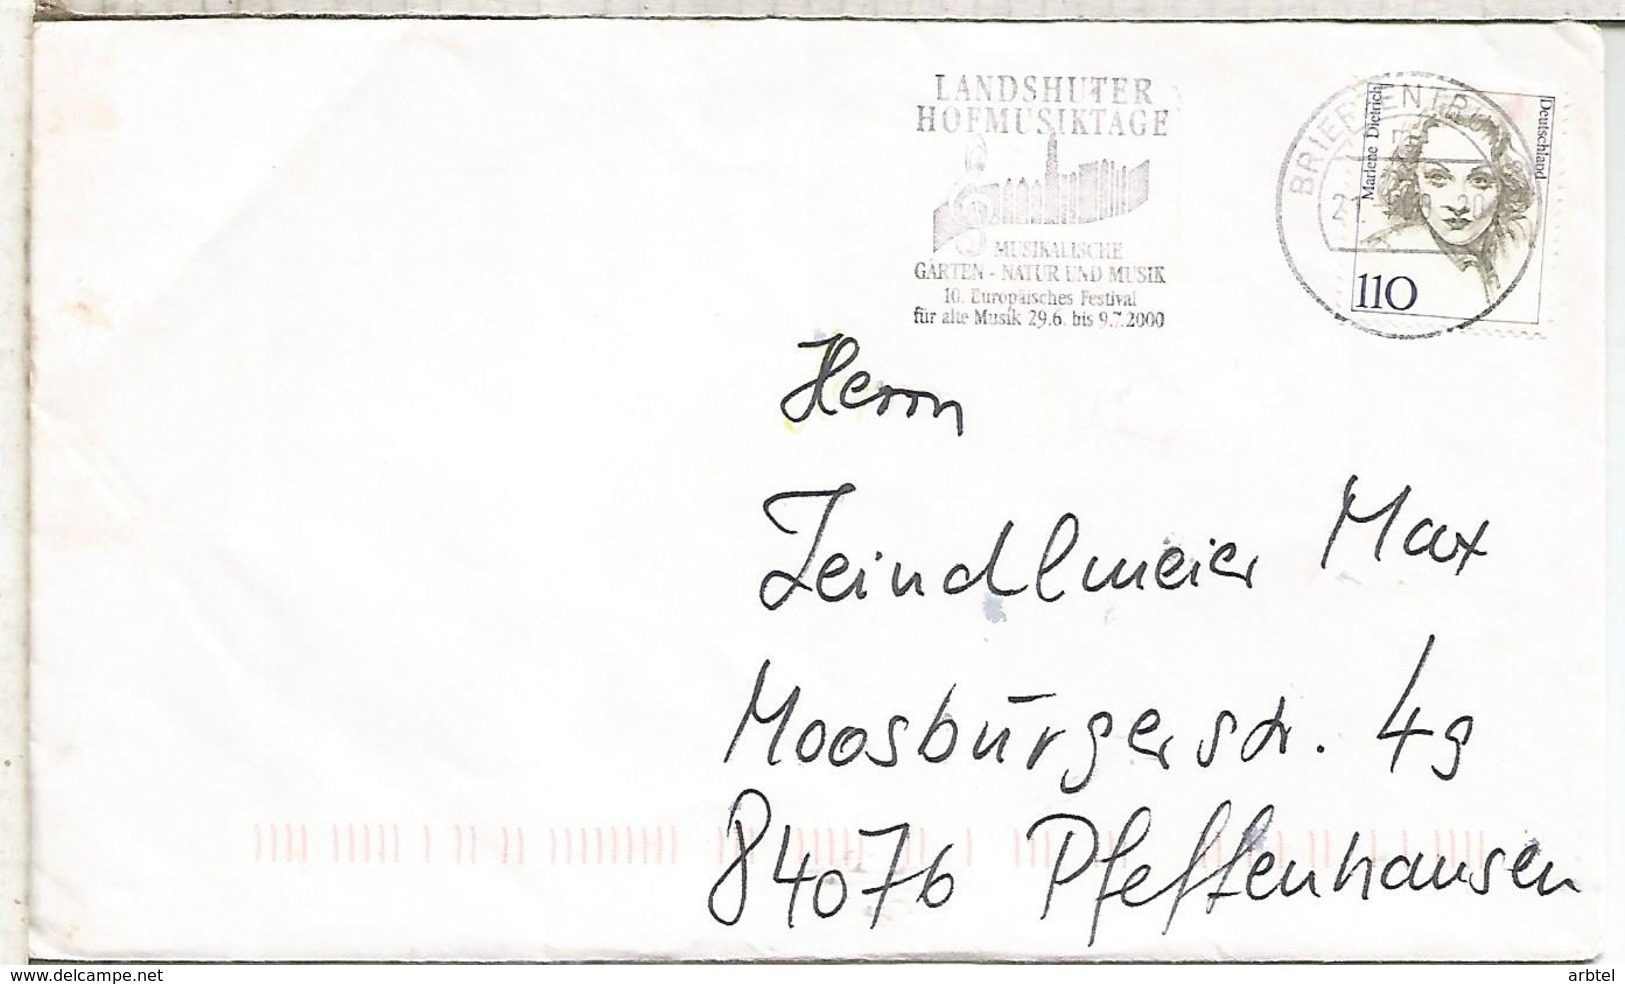 LANDSHUTER
HOFMUSIKTAGE
MUSIKALISCHE
GÄRTEN - NATUR UND MUSIK
10. Europäisches Festival
für alte Musik 29.6. bis 9.7.2000
BRIEFZENTRUM
Marlene Dietrich
Deutschland
110
Herrn
Zeindlmeier Max
Moosbürgerstr. 4g
84076 Pfeffenhausen
www.delcampe.net
arbtel